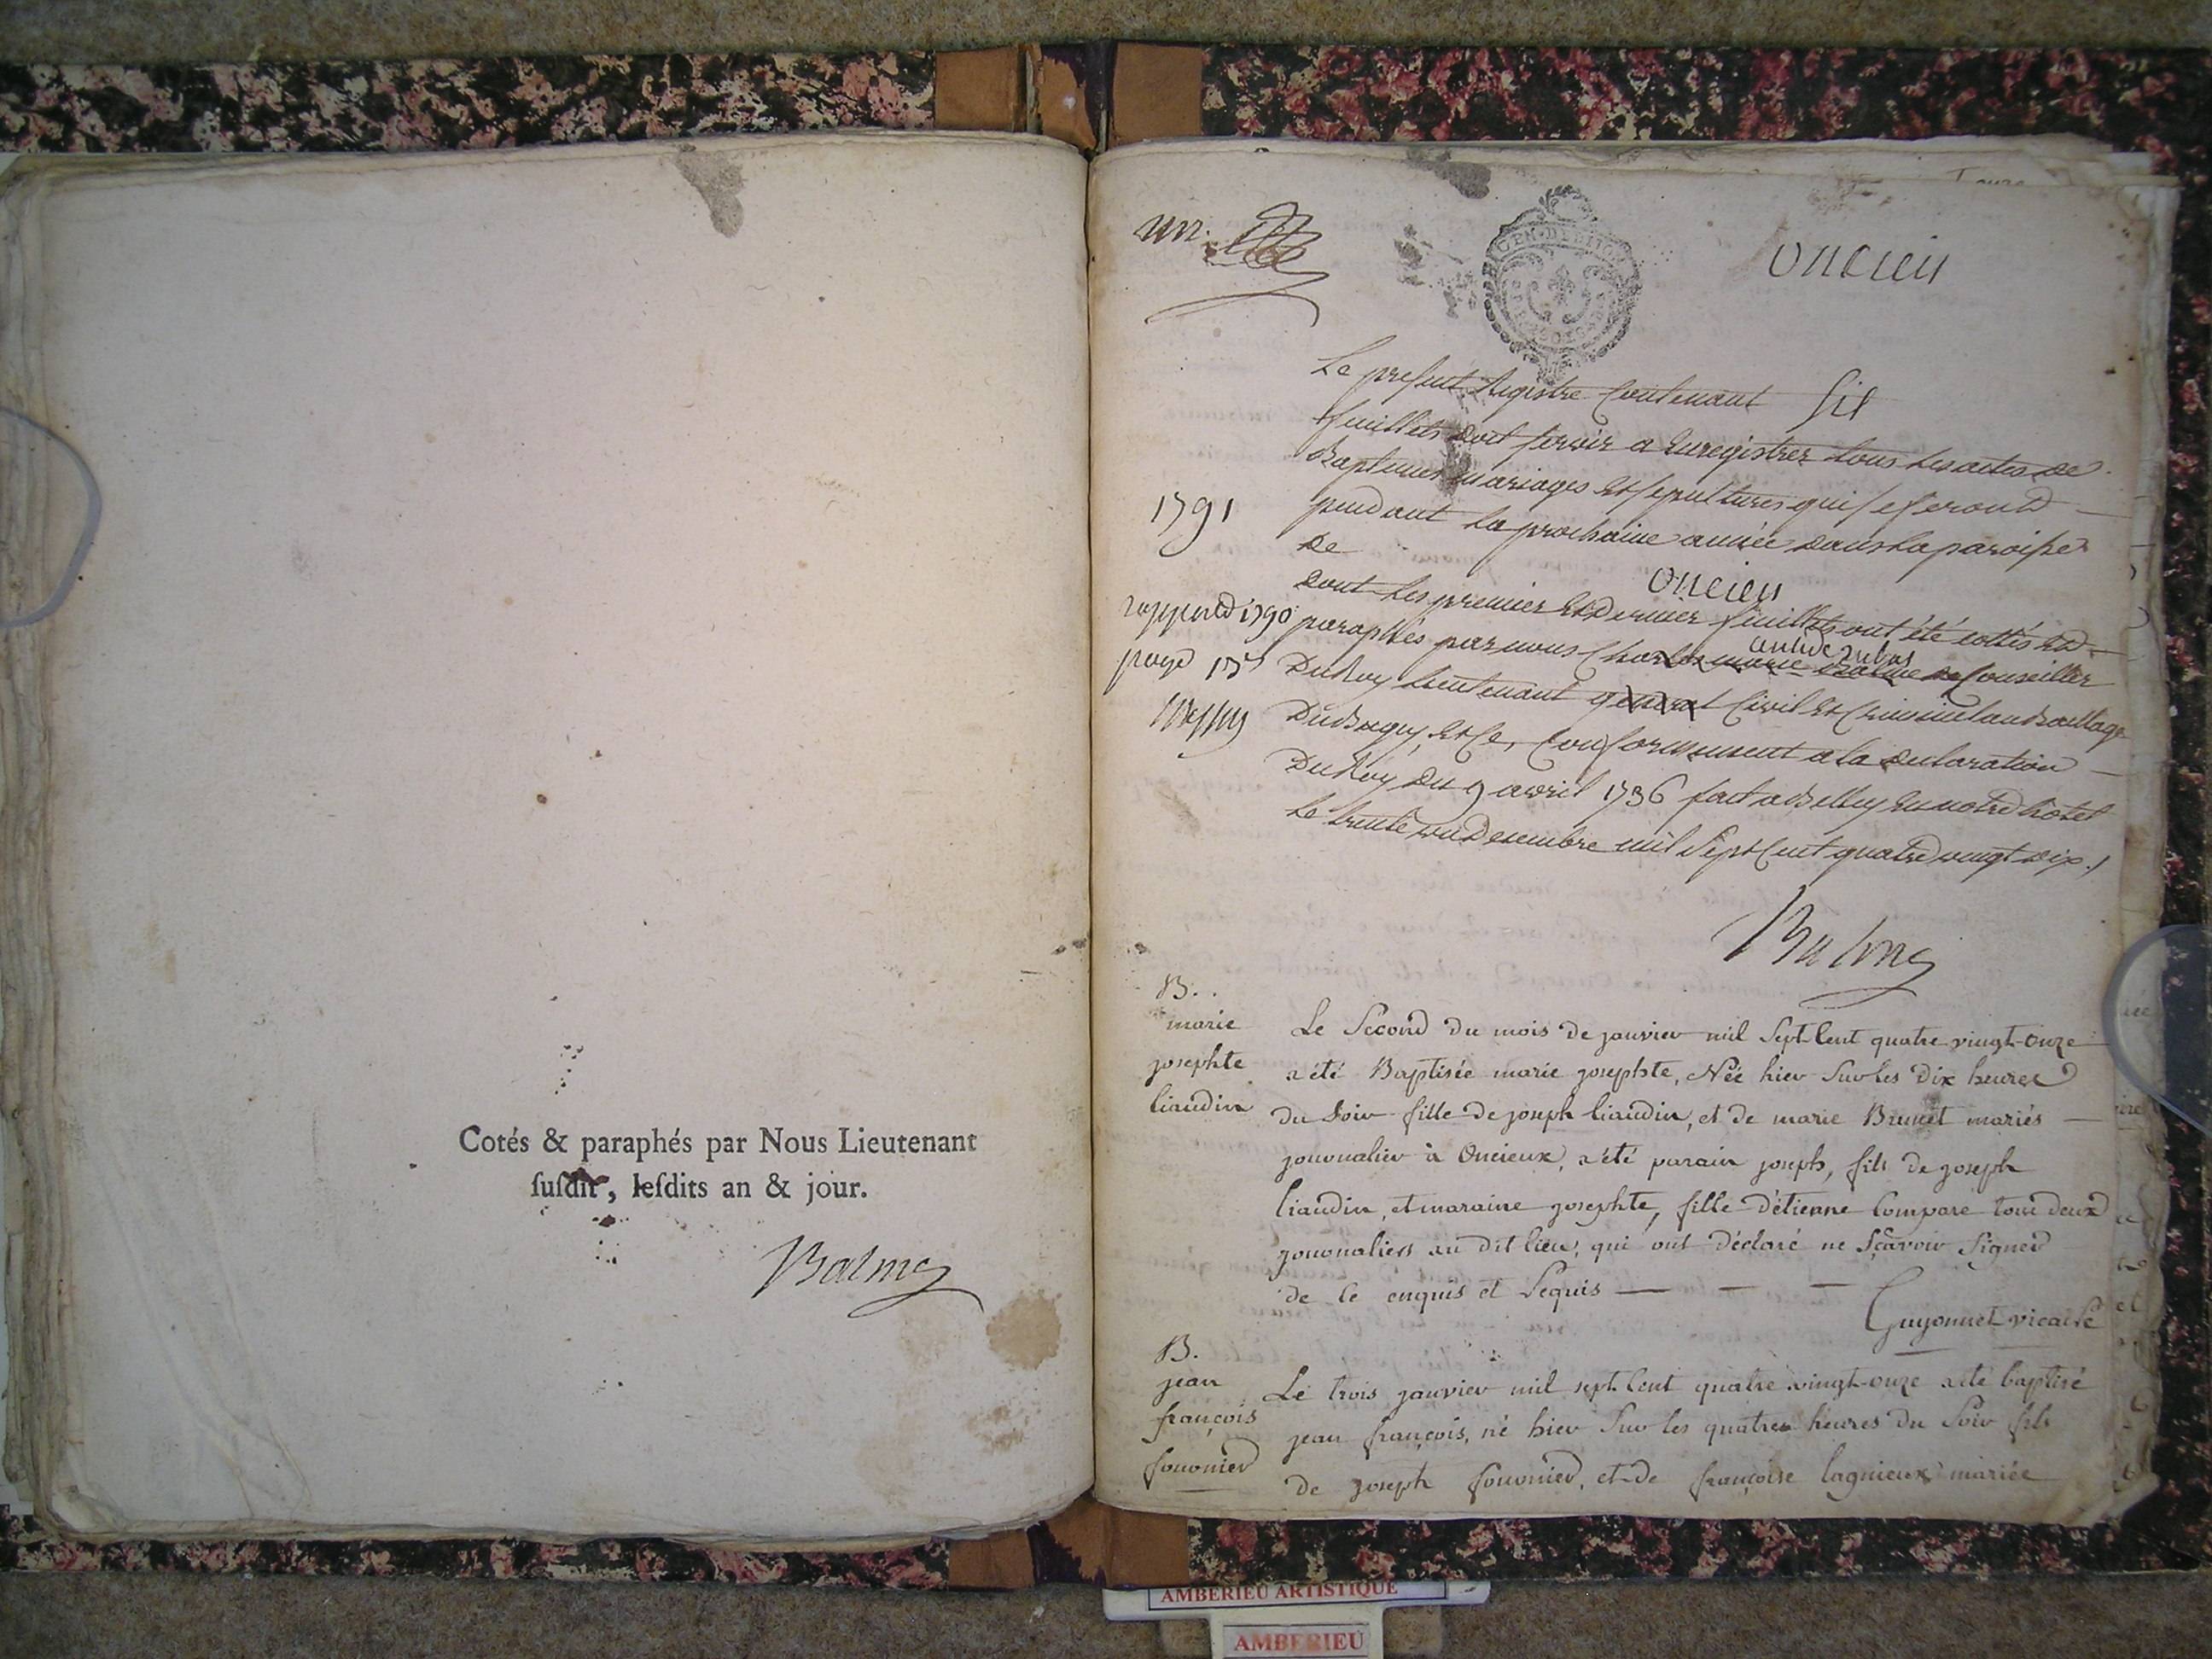 Cotés & paraphés par Nous Lieutenant
ſuſdit, leſdits an & jour.
Balme
un.
GEN. DE DIJON
oncieu
Le present Registre Contenant six
feuillets doit servir a Enregistrer tous les actes de
Baptemes mariages et sepultures qui se feront
1791
pendant la prochaine année dans la paroisse
de
oncieu
dont les premier et dernier feuillets ont été cottés et
rapport 1790
paraphés par nous Charles marie Balme Conseiller
page
Du Roy Lieutenant general Civil et Criminel au Bailliage
Du Bugey, et ce, Conformement a la declaration
Du Roy du 9 avril 1736 fait a Belley En notre hotel
Le trente un Decembre mil Sept Cent quatre vingt dix.
Balme
B.
marie
josephte
liaudin
Le Second du mois de janvier mil Sept Cent quatre vingt-onze
a été Baptisée marie josephte, Née hier Sur les Dix heures
du Soir fille de joseph liaudin, et de marie Brunet mariés
journalier à Oncieux, a été parain joseph, fils de joseph
liaudin, et maraine josephte, fille d'étienne Compare tous deux
journaliers au dit lieu, qui ont déclaré ne Sçavoir Signer
de Ce enquis et Requis
Guyonnet vicaire
B.
jean
françois
fournier
Le trois janvier mil sept Cent quatre vingt-onze a été baptisé
jean françois, né hier Sur les quatres heures du Soir fils
de joseph fournier, et de françoise lagnieux mariés
AMBERIEU ARTISTIQUE
AMBERIEU